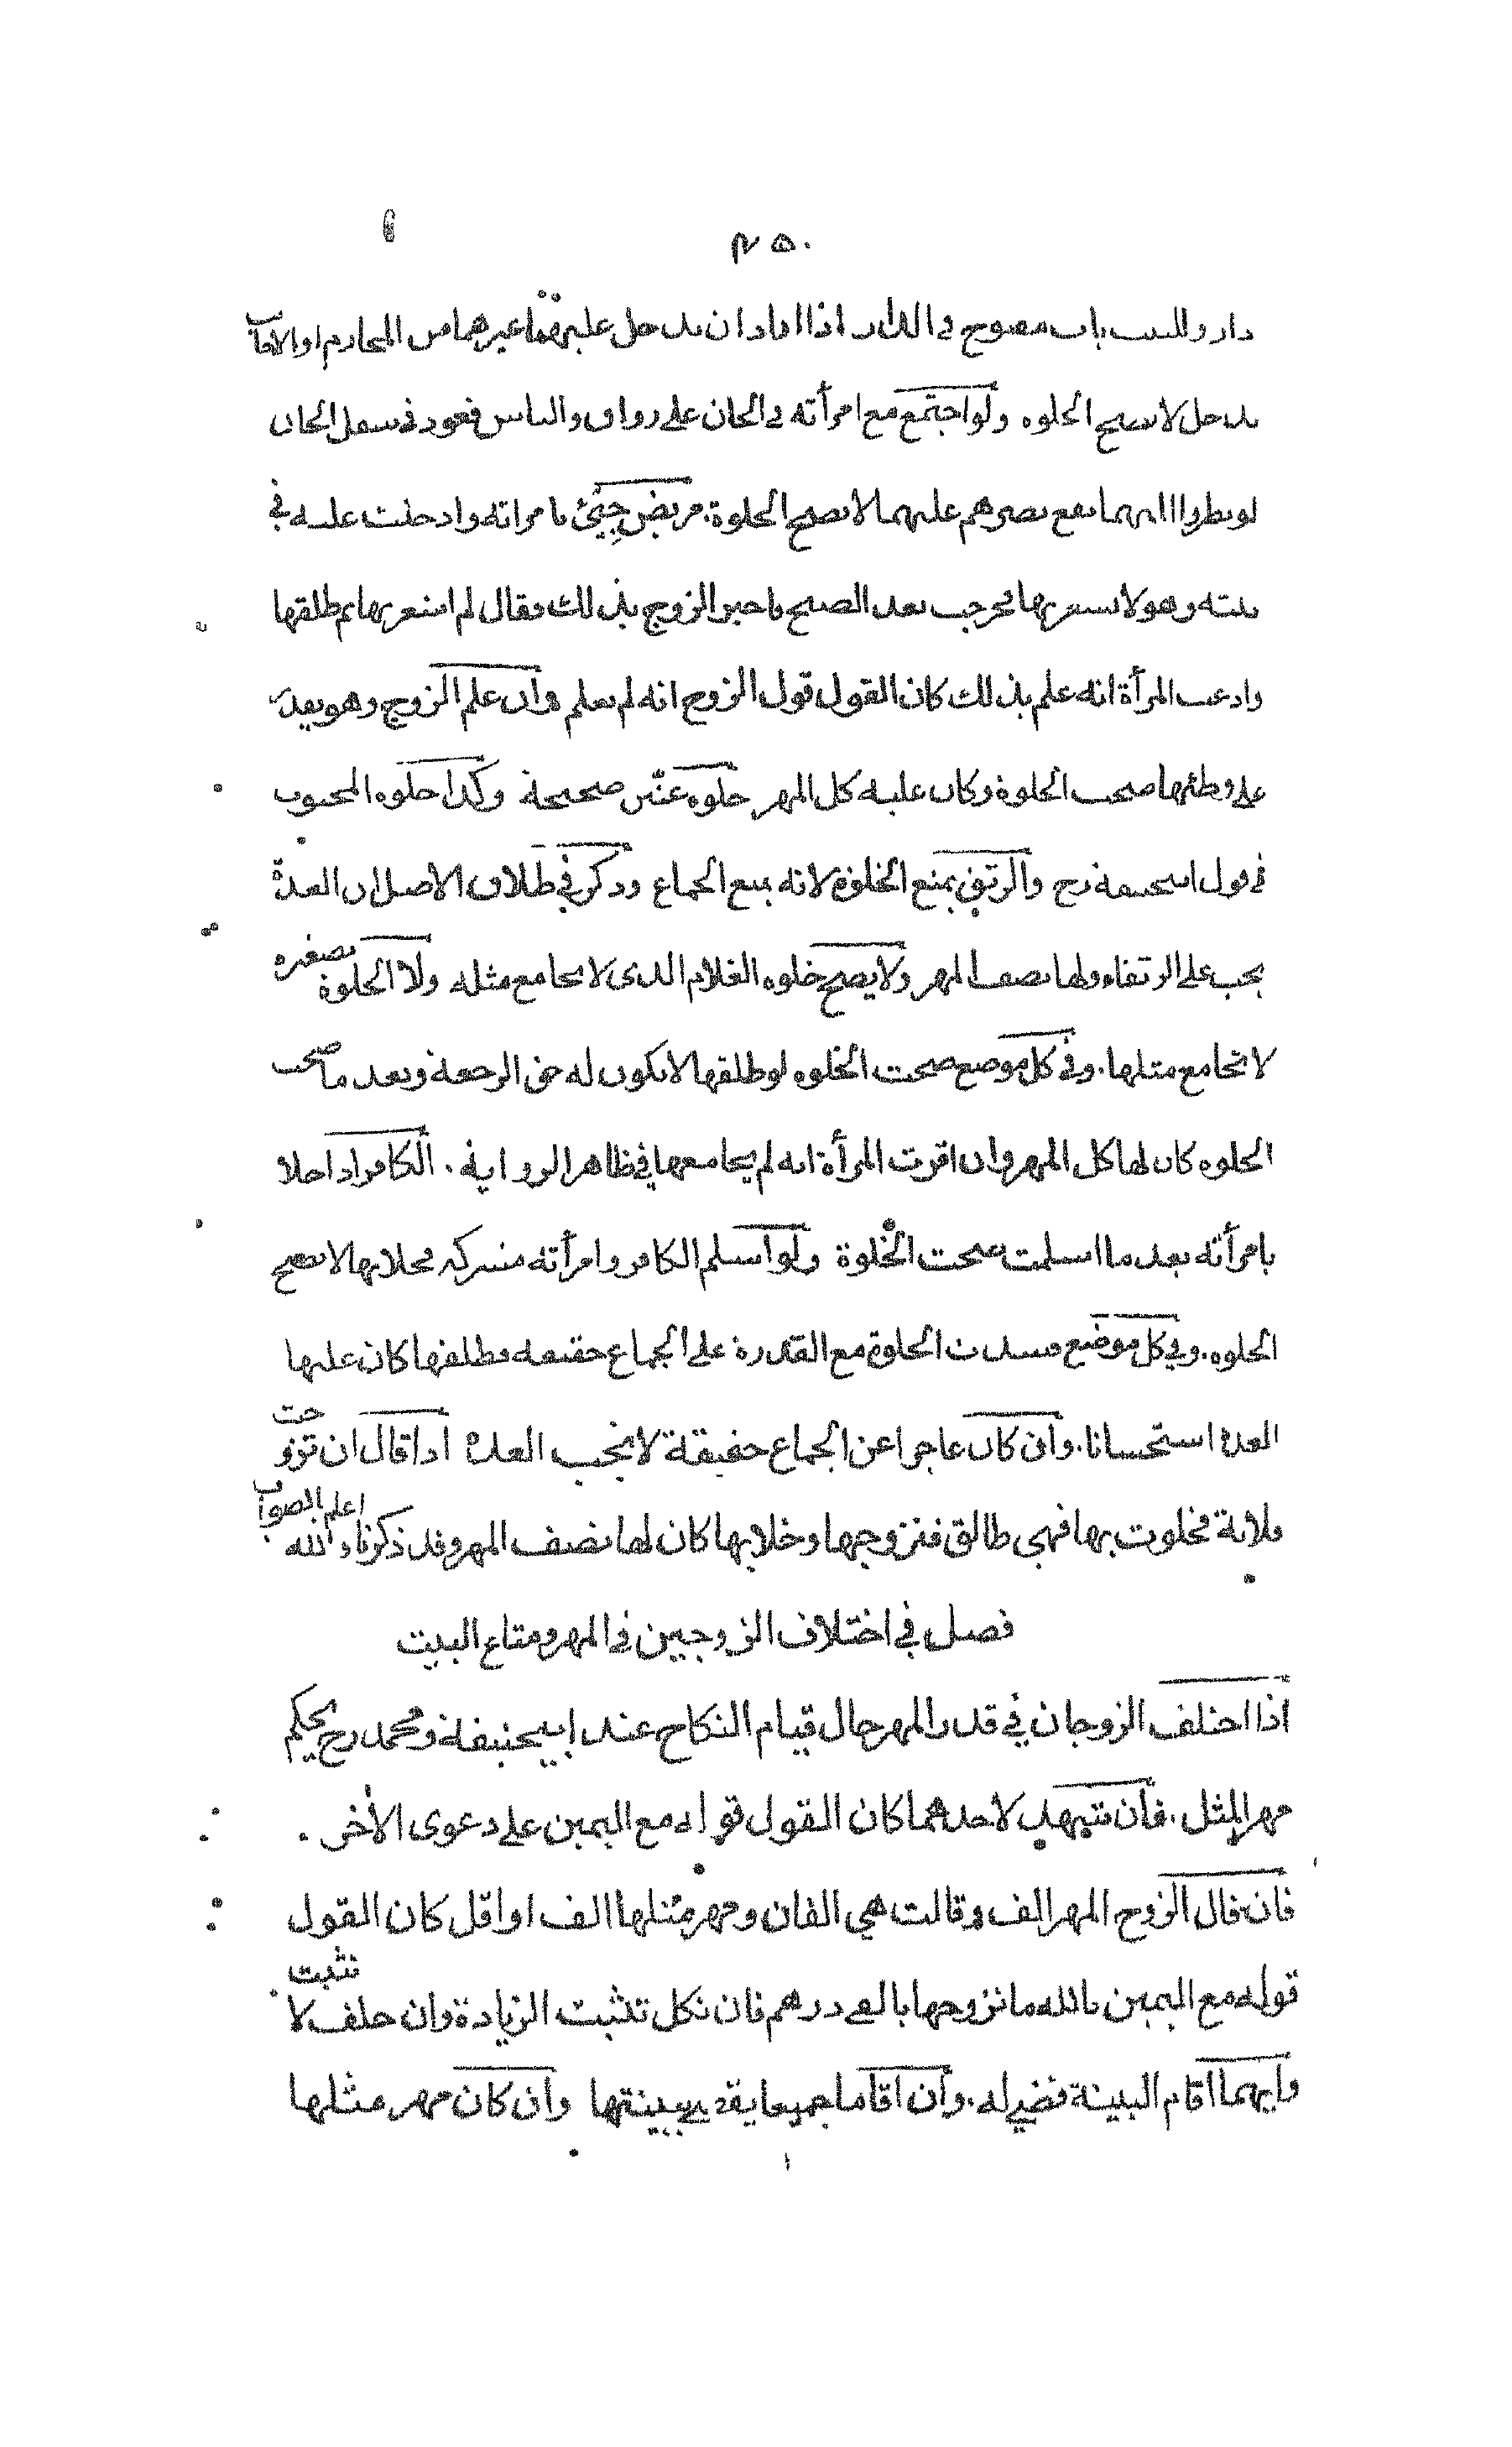 ٢٥٠
دار وللبيت باب مفتوح في الدار اذا اراد ان يدخل عليهما غيرهما من المحارم او الاجانب
يدخل لا تصح الخلوة ولو اجتمع مع امرأته في الخان على رواق والناس قعود في سفل الخان
لو نظروا اليهما يقع بصرهم عليهما لا تصح الخلوة. مريض جيئ بامراته وادخلت عليه في
بيته وهو لا يشعر بها فخرجت بعد الصبح فاخبر الزوج بذلك فقال لم اشعر بها ثم طلقها
وادعت المرأة انه علم بذلك كان القول قول الزوج انه لم يعلم وان علم الزوج وهو يقدر
على وطئها صحت الخلوة وكان عليه كل المهر خلوة عنين صحيحة وكذا خلوة المجبوب
في قول ابيحنيفة رح والرتق يمنع الخلوة لانه يمنع الجماع وذكر في طلاق الاصل ان العدة
يجب على الرتقاء ولها نصف المهر ولا يصح خلوة الغلام الذي لا يجامع مثله ولا الخلوة بصغيرة
لا تجامع مثلها. وفي كل موضع صحت الخلوة لو طلقها لا يكون له حق الرجعة وبعد ما صحت
الخلوة كان لها كل المهر وان اقرت المرأة انه لم يجامعها في ظاهر الرواية. الكافر اذا خلا
بامرأته بعد ما اسلمت صحت الخلوة ولو اسلم الكافر وامرأته مشركة فخلا بها لا تصح
الخلوة. وفي كل موضع فسدت الخلوة مع القدرة على الجماع حقيقة فطلقها كان عليها
العدة استحسانا. وان كان عاجزا عن الجماع حقيقة لا يجب العدة اذا قال ان تزوجت
فلانة فخلوت بها فهي طالق فتزوجها وخلا بها كان لها نصف المهر وقد ذكرناه والله اعلم بالصواب
فصل في اختلاف الزوجين في المهر ومتاع البيت
اذا اختلف الزوجان في قدر المهر حال قيام النكاح عند ابيحنيفة ومحمد رح يحكم
مهر المثل. فان شهد لاحدهما كان القول قوله مع اليمين على دعوى الأخر.
فان قال الزوج المهر الف وقالت هي الفان ومهر مثلها الف او اقل كان القول
قوله مع اليمين بالله ما تزوجها بالفى درهم فان نكل تثبت الزيادة وان حلف لا تثبت
وايهما اقام البينة قضي له. وان اقاما جميعا يقضي ببينتها وان كان مهر مثلها